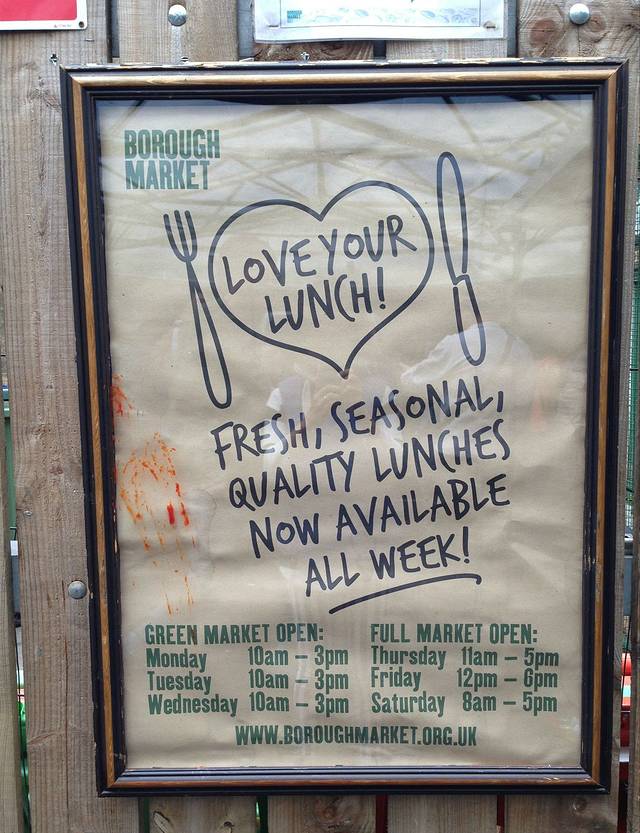 BOROUGH
MARKET
LOVE YOUR
LUNCH!
FRESH, SEASONAL,
QUALITY LUNCHES
NOW AVAILABLE
ALL WEEK!
GREEN MARKET OPEN:
Monday 10am – 3pm
Tuesday 10am – 3pm
Wednesday 10am – 3pm
FULL MARKET OPEN:
Thursday 11am – 5pm
Friday 12pm – 6pm
Saturday 8am – 5pm
WWW.BOROUGHMARKET.ORG.UK